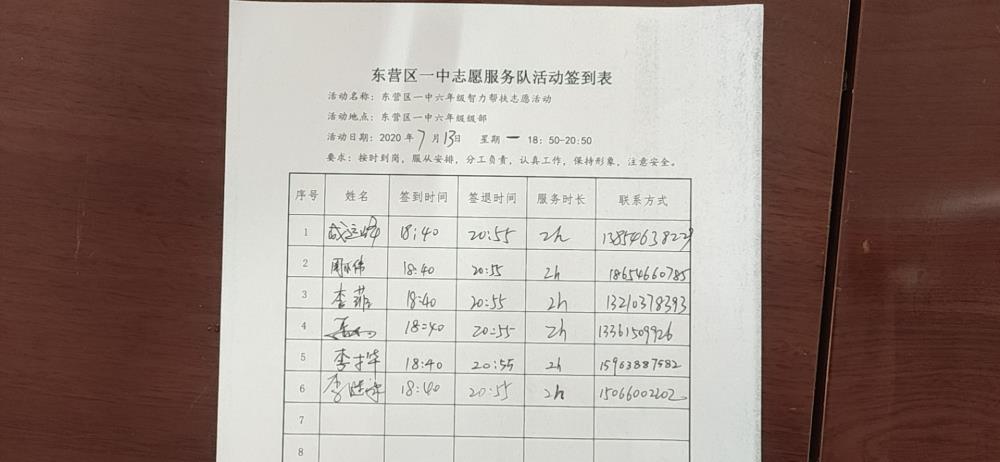 东营区一中志愿服务队活动签到表
活动名称：东营区一中六年级智力帮扶志愿活动
活动地点：东营区一中六年级级部
活动日期：2020 年 7 月 13日 星期 一 18：50-20:50
要求：按时到岗，服从安排，分工负责，认真工作，保持形象，注意安全。
序号 姓名 签到时间 签退时间 服务时长 联系方式
1 18:40 20:55 2h 13854638229
2 18:40 20:55 2h 18654660785
3 李 18:40 20:55 2h 13210378393
4 18:40 20:55 2h 13361509926
5 李才华 18:40 20:55 2h 15963887582
6 李 18:40 20:55 2h 15066002202
7
8